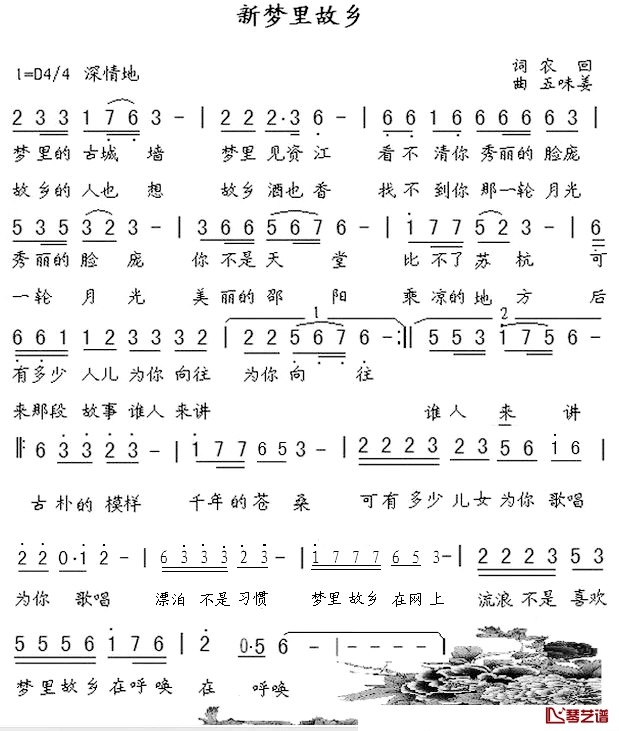 新梦里故乡
1=D4/4 深情地 词 农 回
曲 五味姜
2 3 3 1 7 6 3 - | 2 2 2·3 6 - | 6 6 1 6 6 6 6 6 6 3 |
梦里的 古城 墙 梦里 见资江 看不清你 秀丽的脸庞
故乡的 人也 想 故乡 酒也香 找不到你 那一轮月光
5 3 5 3 2 3 - | 3 6 6 5 6 7 6 - | 1 7 7 5 2 3 | 6
秀丽的脸 庞 你 不是天 堂 比 不了 苏 杭 可
一轮 月 光 美 丽的邵 阳 乘 凉的地 方 后
1 2
6 6 1 1 2 3 3 3 2 | 2 2 5 6 7 6 - :|| 5 5 3 1 7 5 6 -
有多少 人儿 为你 向往 为你 向 往
来那段 故事 谁人 来讲 谁人 来 讲
||: 6 3 3 2 3 - | 1 7 7 6 5 3 - | 2 2 2 3 2 3 5 6 1 6 |
古 朴的 模样 千年的苍 桑 可有多少儿女为你 歌唱
2 2 0·1 2 - | 6 3 3 3 2 3 - | 1 7 7 7 6 5 3 - | 2 2 2 3 5 3
为你 歌唱 漂泊 不是习惯 梦里故乡在网上 流浪不是 喜欢
5 5 5 6 1 7 6 | 2 0·5 6 - | - - - - |
梦里故乡在呼唤 在 呼唤
琴艺谱